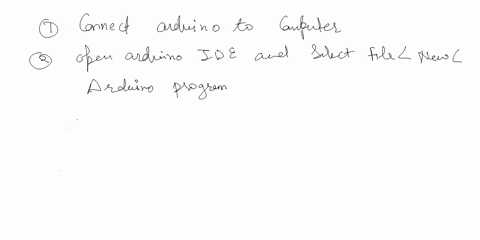 ① Connect arduino to Computer
② open arduino IDE and Select File < New <
Arduino program